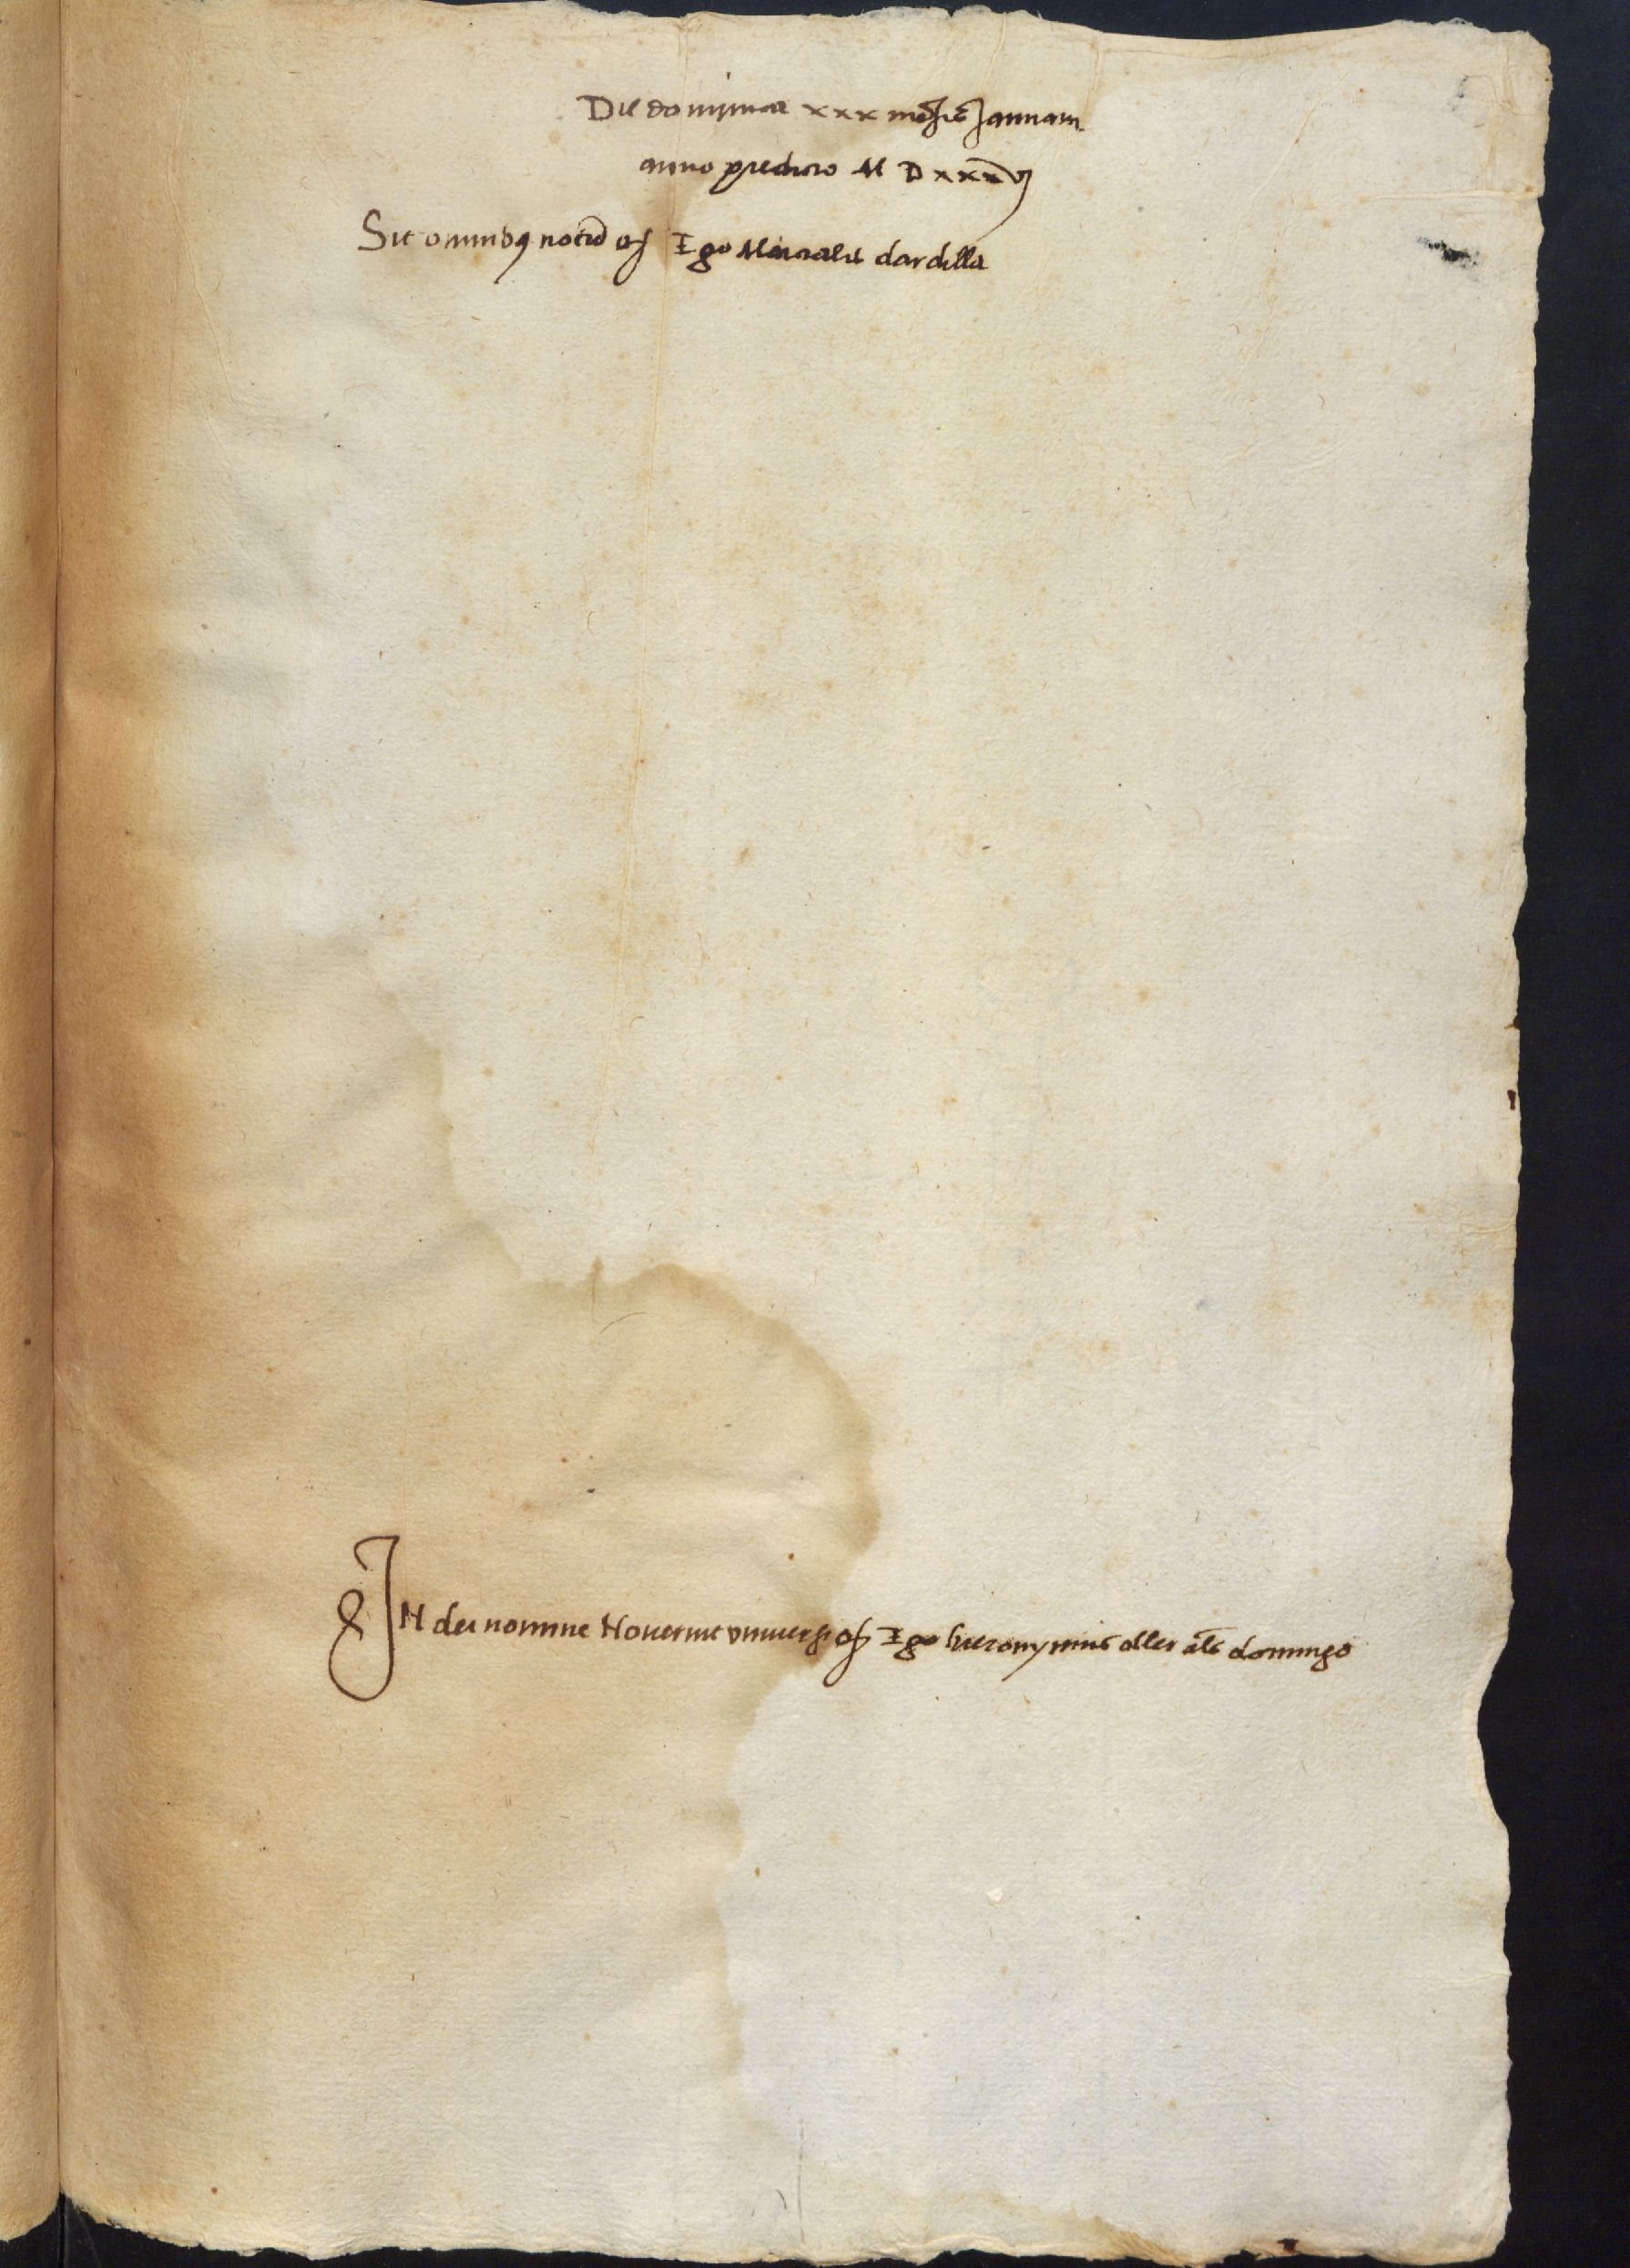 Die dominica xxx mẽsis Januarii
anno predicto M D xxxvj
Sit omnibꝫ notũ qͥ Ego dardilla
IN dei nomine Noverint universi qͥ Ego hieronymus oller als̃ domingo